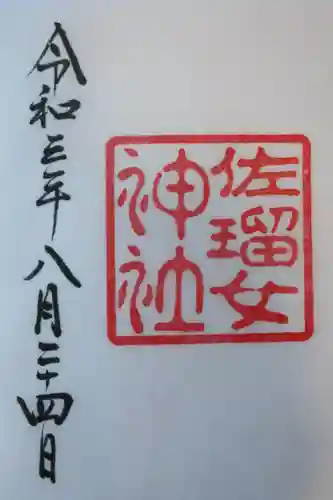 佐瑠女
神社
令和三年八月二十四日